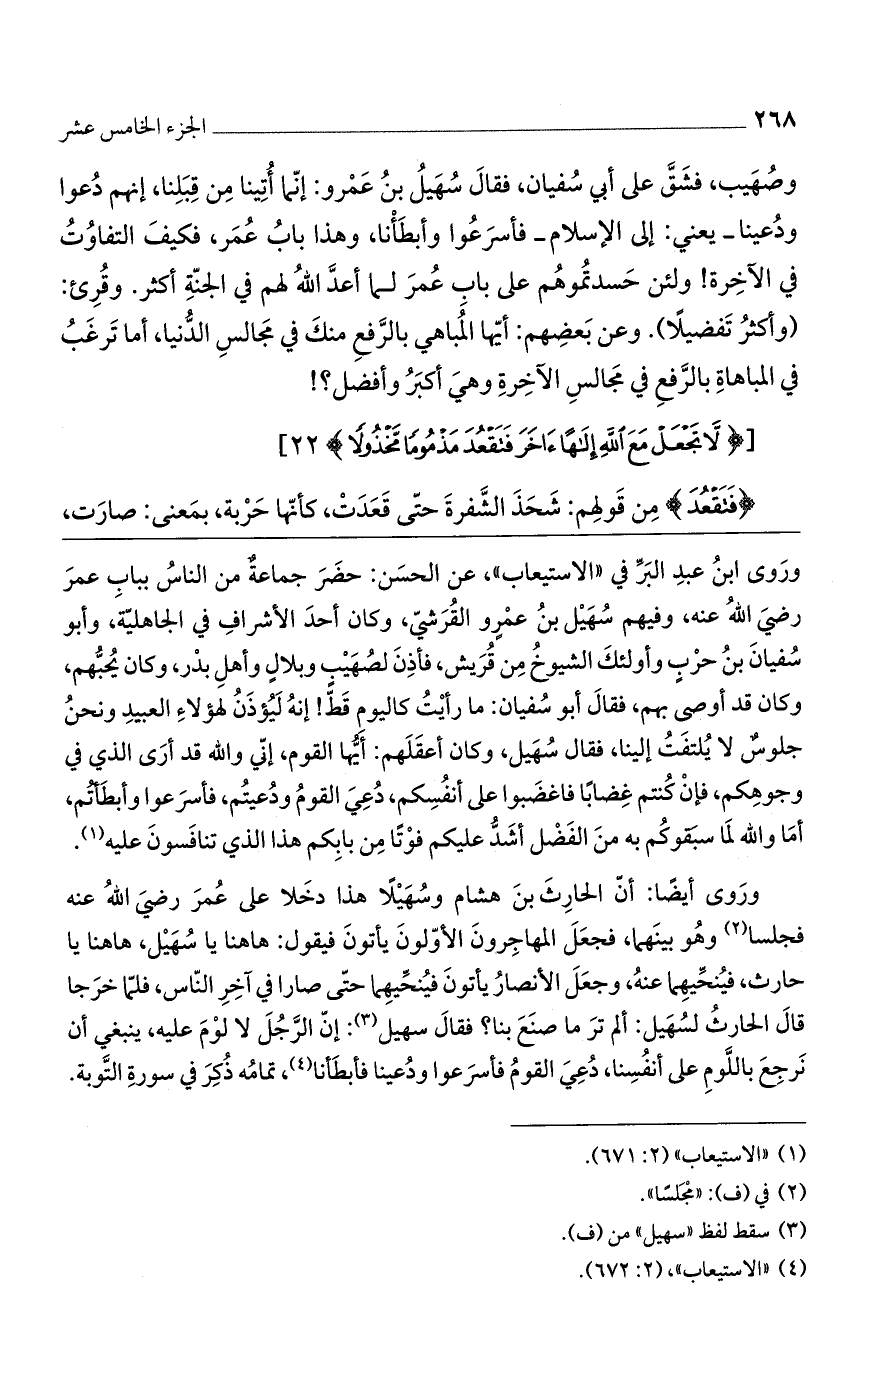 ٢٦٨ الجزء الخامس عشر
وصُهَيب، فشَقَّ على أبي سُفيان، فقالَ سُهَيلُ بنُ عَمْرو: إنّما أُتِينا مِن قِبَلِنا، إنهم دُعوا
ودُعينا ـ يعني: إلى الإسلام ـ فأسرَعُوا وأبطَأْنا، وهذا بابُ عُمَر، فكيفَ التفاوُتُ
في الآخِرة! ولئن حَسدتُموهُم على بابِ عُمرَ لـما أعدَّ اللهُ لهم في الجنّةِ أكثر. وقُرِئ:
(وأكثرُ تَفضيلًا). وعن بَعضِهم: أيّها المُباهي بالرَّفعِ منكَ في مَجالسِ الدُّنيا، أما تَرغَبُ
في المباهاةِ بالرَّفعِ في مَجالسِ الآخِرةِ وهيَ أكبَرُ وأفضل؟!
[﴿لَّا تَجْعَلْ مَعَ ٱللَّهِ إِلَـٰهًا ءَاخَرَ فَتَقْعُدَ مَذْمُومًا مَّخْذُولًا﴾ ٢٢]
﴿فَتَقْعُدَ﴾ مِن قَولِهم: شَحَذَ الشَّفرةَ حتّى قَعَدَتْ، كأنّها حَرْبة، بمَعنى: صارَت،
ورَوى ابنُ عبدِ البَرِّ في «الاستيعاب»، عن الحسَن: حضَرَ جماعةٌ من الناسُ ببابِ عمرَ
رضيَ اللهُ عنه، وفيهم سُهَيْل بنُ عمْرٍو القُرَشيّ، وكان أحدَ الأشرافِ في الجاهليّة، وأبو
سُفيانَ بنُ حرْبٍ وأولئكَ الشيوخُ مِن قُرَيش، فأذِنَ لصُهَيْبٍ وبلالٍ وأهلِ بدْر، وكان يُحبُّهم،
وكان قد أوصى بهم، فقالَ أبو سُفيان: ما رأيْتُ كاليومِ قَطُّ! إنهُ لَيُؤذَنُ لهؤلاءِ العبيدِ ونحنُ
جلوسٌ لا يُلتفَتُ إلينا، فقال سُهَيل، وكان أعقَلَهم: أيُّها القوم، إنّي والله قد أرَى الذي في
وجوهِكم، فإنْ كُنتم غِضابًا فاغضَبوا على أنفُسِكم، دُعِيَ القومُ ودُعيتُم، فأسرَعوا وأبطَأتُم،
أمَا والله لَمَا سبَقوكُم به منَ الفَضْل أشَدُّ عليكم فوْتًا مِن بابِكم هذا الذي تنافَسونَ عليه(١).
ورَوى أيضًا: أنّ الحارِثَ بنَ هشام وسُهَيْلًا هذا دخَلا على عُمرَ رضيَ اللهُ عنه
فجلسا(٢) وهُو بينَهما، فجعَلَ المهاجِرونَ الأوّلونَ يأتونَ فيقول: هاهنا يا سُهَيْل، هاهنا يا
حارث، فيُنحِّيهِما عنهُ، وجعَلَ الأنصارُ يأتونَ فيُنحِّيهِما حتّى صارا في آخِرِ النّاس، فلمّا خرَجا
قالَ الحارثُ لسُهَيل: ألم ترَ ما صنَعَ بنا؟ فقالَ سهيل(٣): إنّ الرَّجُلَ لا لوْمَ عليه، ينبغي أن
نَرجِعَ باللَّومِ على أنفُسِنا، دُعِيَ القومُ فأسرَعوا ودُعينا فأبطَأنا(٤)، تمامُه ذُكِرَ في سورةِ التَّوبة.
(١) «الاستيعاب» (٢: ٦٧١).
(٢) في (ف): «مَجْلَسًا».
(٣) سقط لفظ «سهيل» من (ف).
(٤) «الاستيعاب»، (٢: ٦٧٢).